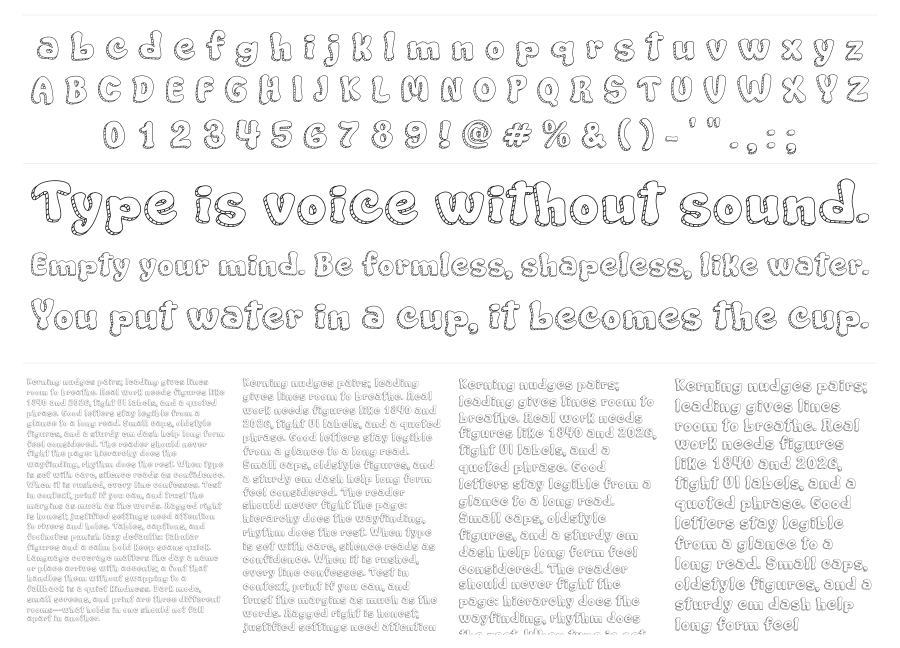 a b c d e f g h i j k l m n o p q r s t u v w x y z
A B C D E F G H I J K L M N O P Q R S T U V W X Y Z
0 1 2 3 4 5 6 7 8 9 ! @ # % & ( ) - ' " . , : ;
Type is voice without sound.
Empty your mind. Be formless, shapeless, like water.
You put water in a cup, it becomes the cup.
Kerning nudges pairs; leading gives lines
room to breathe. Real work needs figures like
1840 and 2026, tight UI labels, and a quoted
phrase. Good letters stay legible from a
glance to a long read. Small caps, oldstyle
figures, and a sturdy em dash help long form
feel considered. The reader should never
fight the page: hierarchy does the
wayfinding, rhythm does the rest. When type
is set with care, silence reads as confidence.
When it is rushed, every line confesses. Test
in context, print if you can, and trust the
margins as much as the words. Ragged right
is honest; justified settings need attention
to rivers and holes. Tables, captions, and
footnotes punish lazy defaults: tabular
figures and a calm bold keep scans quick.
Language coverage matters the day a name
or place arrives with accents; a font that
handles them without swapping to a
fallback is a quiet kindness. Dark mode,
small screens, and print are three different
rooms—what holds in one should not fall
apart in another.
Kerning nudges pairs; leading
gives lines room to breathe. Real
work needs figures like 1840 and
2026, tight UI labels, and a quoted
phrase. Good letters stay legible
from a glance to a long read.
Small caps, oldstyle figures, and
a sturdy em dash help long form
feel considered. The reader
should never fight the page:
hierarchy does the wayfinding,
rhythm does the rest. When type
is set with care, silence reads as
confidence. When it is rushed,
every line confesses. Test in
context, print if you can, and
trust the margins as much as the
words. Ragged right is honest;
justified settings need attention
Kerning nudges pairs;
leading gives lines room to
breathe. Real work needs
figures like 1840 and 2026,
tight UI labels, and a
quoted phrase. Good
letters stay legible from a
glance to a long read.
Small caps, oldstyle
figures, and a sturdy em
dash help long form feel
considered. The reader
should never fight the
page: hierarchy does the
wayfinding, rhythm does
the rest. When type is set
Kerning nudges pairs;
leading gives lines
room to breathe. Real
work needs figures
like 1840 and 2026,
tight UI labels, and a
quoted phrase. Good
letters stay legible
from a glance to a
long read. Small caps,
oldstyle figures, and a
sturdy em dash help
long form feel